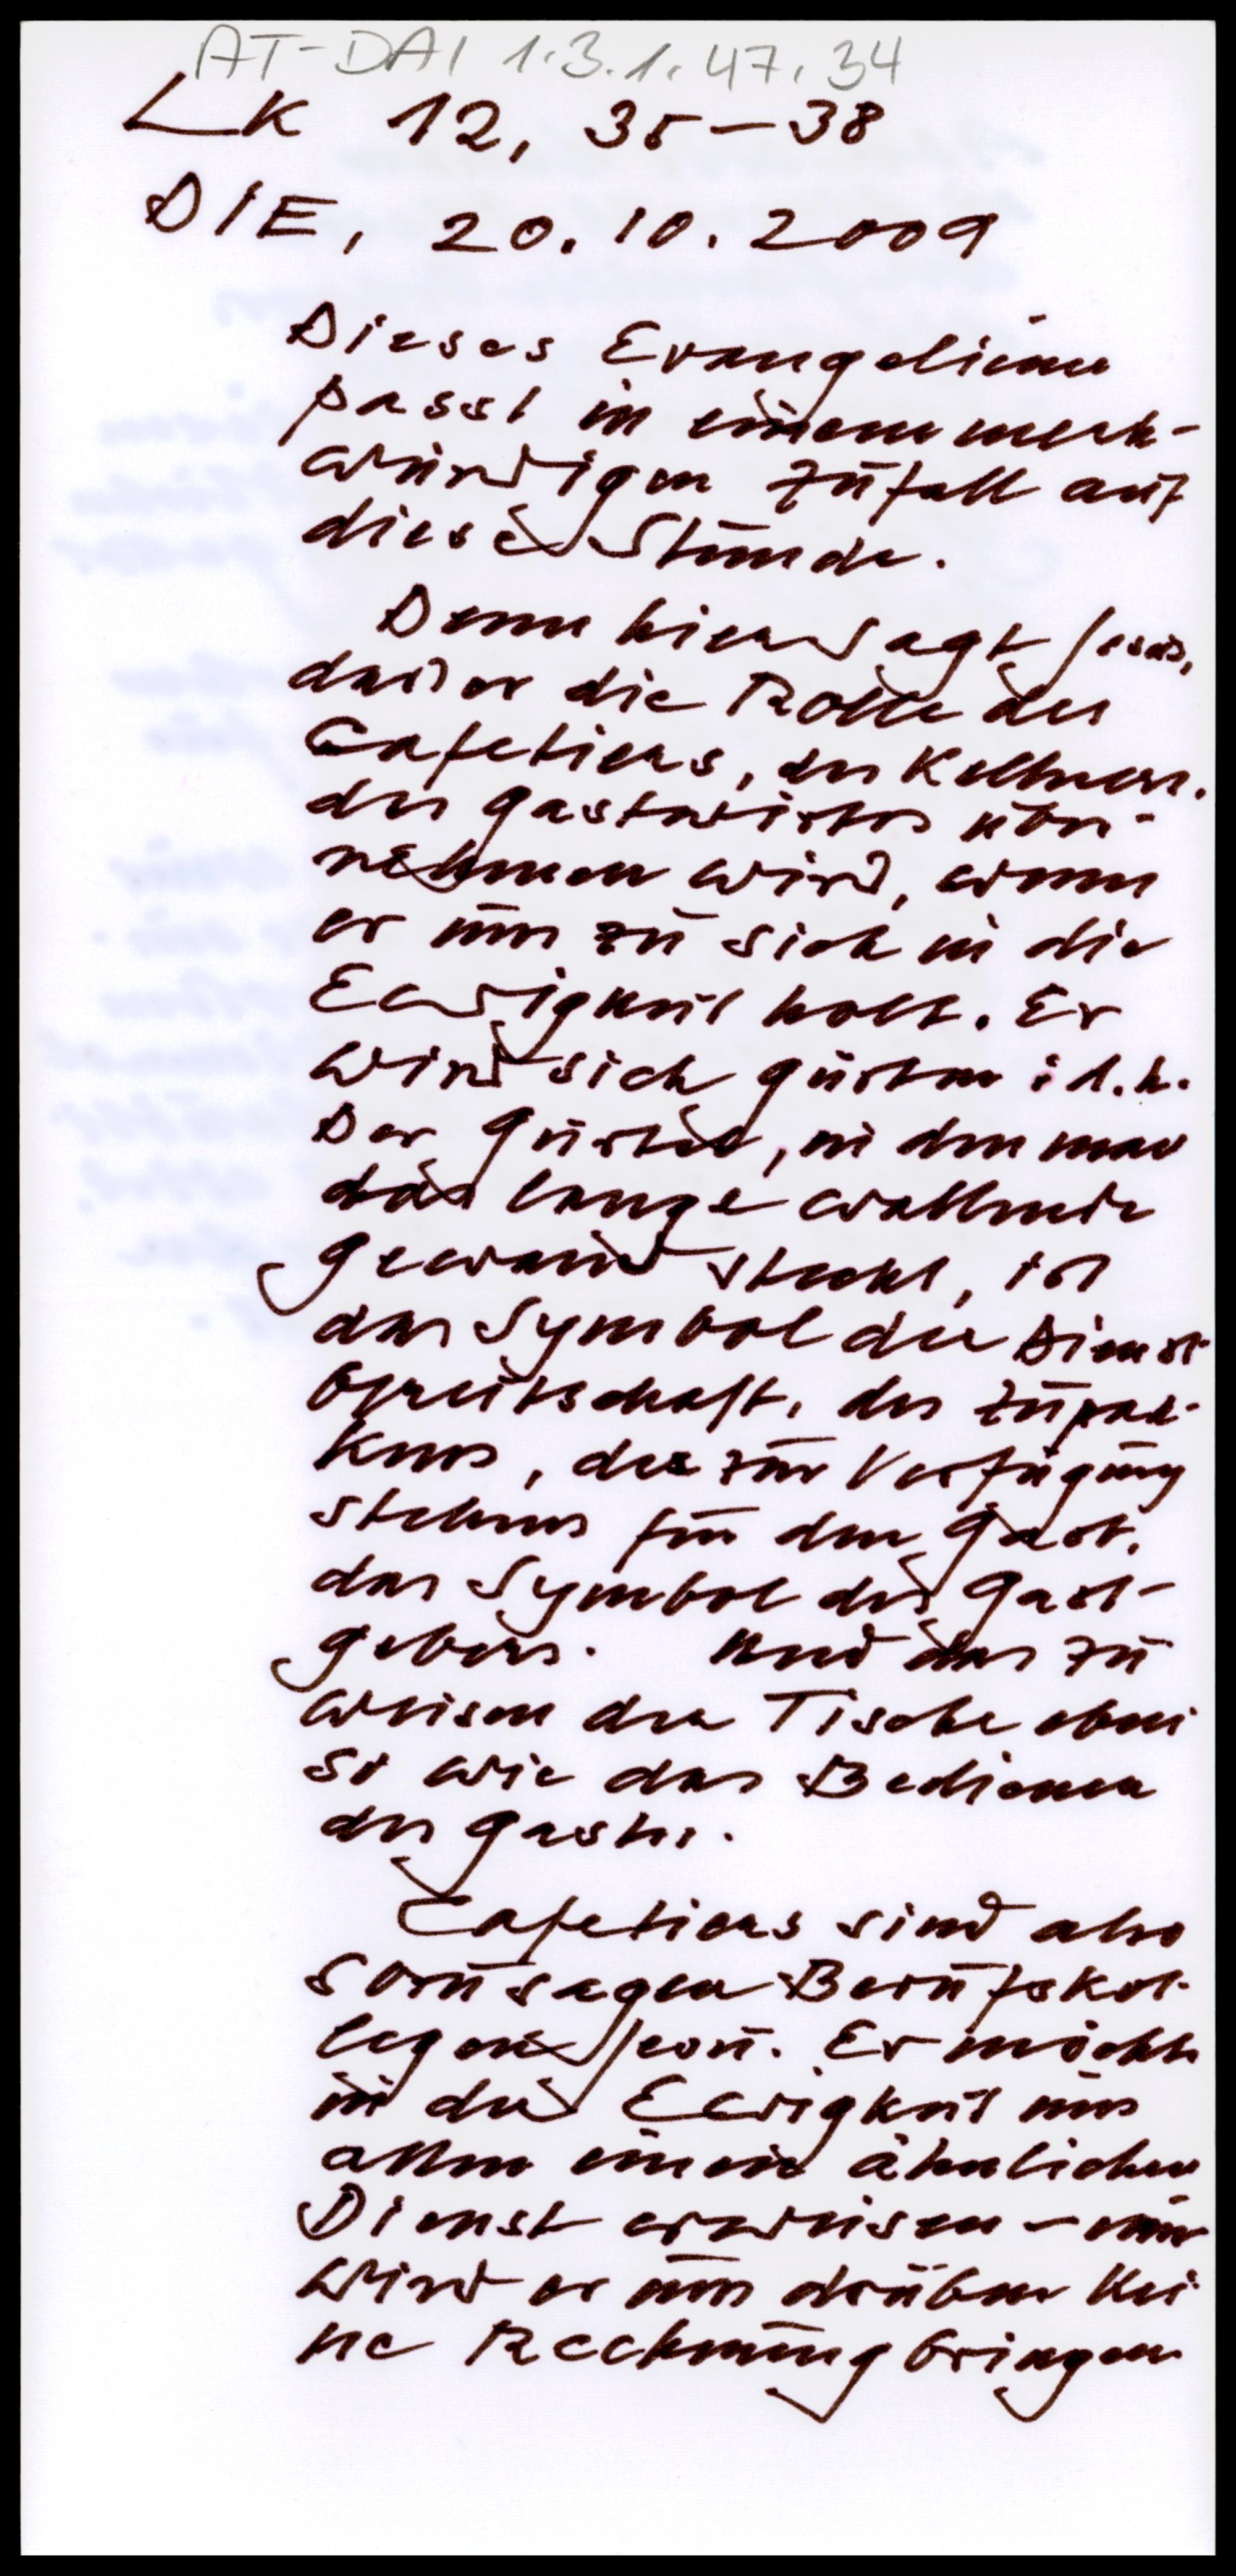 AT-DAI 1.3.1.47.34
LK 12, 35-38
DIE, 20.10.2009
Dieses Evangelium
passt in einem merk-
würdigen Zufall auf
diese Stunde.
Denn hier sagt Jesus,
dass er die Rolle des
Cafetiers, des Kellners,
des Gastwirtes über-
nehmen wird, wenn
er uns zu sich in die
Ewigkeit holt. Er
wird sich gürten: d.h.
Der Gürtel, in den man
das lange wallende
Gewand steckt, ist
das Symbol der Dienst
bereitschaft, des Zupak-
kens, des zur Verfügung
stehens für den Gast,
das Symbol des Gast-
gebers. Und das zu
weisen der Tische eben
so wie das Bedienen
der Gäste.
Cafetiers sind also
sozusagen Berufskol-
legen Jesu. Er möchte
in der Ewigkeit uns
allen einen ähnlichen
Dienst erweisen - nur
wird er uns drüben kei
ne Rechnung bringen